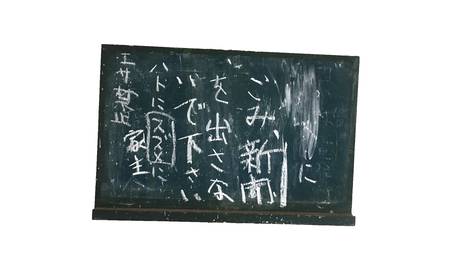 に
ごみ、新聞
を出さな
いで下さい
ハトにスズメに
エサ禁止 家主